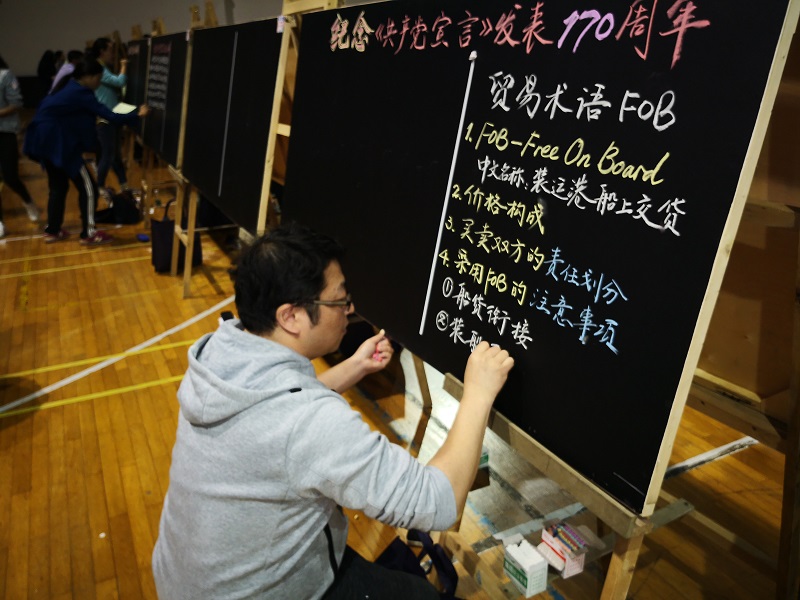 纪念《共产党宣言》发表170周年
贸易术语 FOB
1. FOB-Free On Board
中文名称：装运港船上交货
2. 价格构成
3. 买卖双方的责任划分
4. 采用FOB的注意事项
①船货衔接
②装船